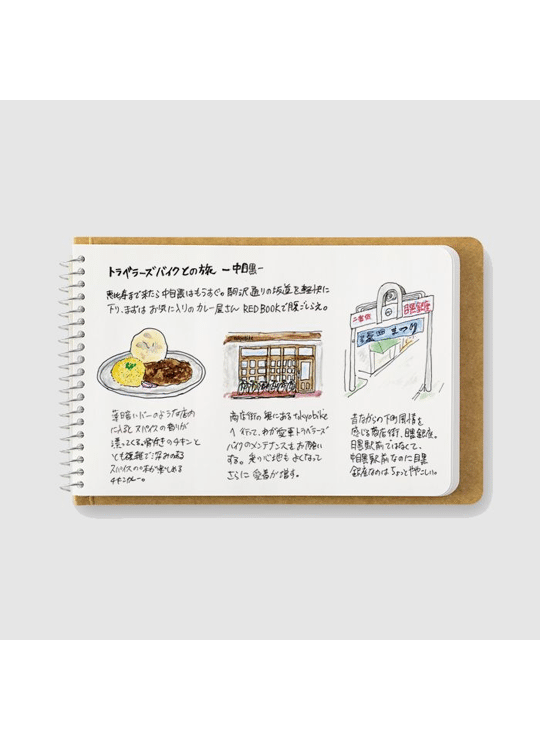 トラベラーズバイクとの旅 ー中目黒ー
恵比寿まで来たら中目黒はもうすぐ。駒沢通りの坂道を軽快に
下り、まずはお気に入りのカレー屋さん RED BOOKで腹ごしらえ。
薄暗いバーのような店内
に入るとスパイスの香りが
漂ってくる。骨付きのチキンと
とても複雑で深みのある
スパイスの味が楽しめる
チキンカレー。
tokyobike
商店街の裏にあるtokyobike
へ行って、わが愛車トラベラーズ
バイクのメンテナンスもお願い
する。乗り心地もよくなって
さらに愛着が増す。
二番街
目黒銀座
まつり
昔ながらの下町風情を
感じる商店街、目黒銀座。
目黒駅前ではなくて、
中目黒駅前なのに目黒
銀座なのはちょっとややこしい。